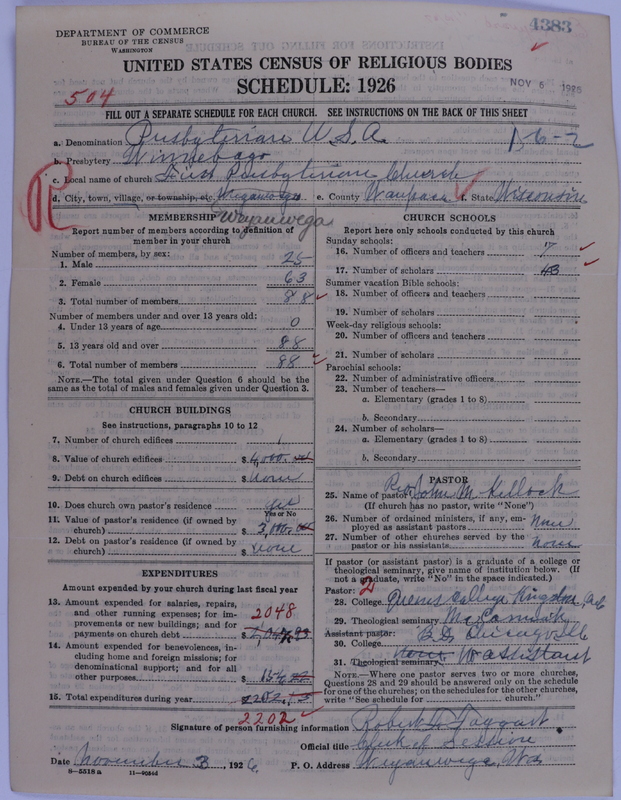 4383
DEPARTMENT OF COMMERCE
BUREAU OF THE CENSUS
WASHINGTON
UNITED STATES CENSUS OF RELIGIOUS BODIES
SCHEDULE: 1926
NOV 6 1926
504
FILL OUT A SEPARATE SCHEDULE FOR EACH CHURCH. SEE INSTRUCTIONS ON THE BACK OF THIS SHEET
a. Denomination Presbyterian U.S.A.
b. Presbytery Winnebago
c. Local name of church First Presbyterian Church
d. City, town, village, or township, etc. Weyauwega e. County Waupaca f. State Wisconsin
Weyauwega
MEMBERSHIP
Report number of members according to definition of
member in your church
Number of members, by sex:
1. Male 25
2. Female 63
3. Total number of members 88
Number of members under and over 13 years old:
4. Under 13 years of age 0
5. 13 years old and over 88
6. Total number of members 88
NOTE.—The total given under Question 6 should be the
same as the total of males and females given under Question 3.
CHURCH BUILDINGS
See instructions, paragraphs 10 to 12
7. Number of church edifices 1
8. Value of church edifices $ 6,000
9. Debt on church edifices $ none
10. Does church own pastor's residence yes
Yes or No
11. Value of pastor's residence (if owned by
church) $ 3,000
12. Debt on pastor's residence (if owned by
church) $ none
EXPENDITURES
Amount expended by your church during last fiscal year
13. Amount expended for salaries, repairs,
and other running expenses; for im-
provements or new buildings; and for
payments on church debt $ 2048
14. Amount expended for benevolences, in-
cluding home and foreign missions; for
denominational support; and for all
other purposes $ 154
15. Total expenditures during year
2202
CHURCH SCHOOLS
Report here only schools conducted by this church
Sunday schools:
16. Number of officers and teachers 7
17. Number of scholars 43
Summer vacation Bible schools:
18. Number of officers and teachers
19. Number of scholars
Week-day religious schools:
20. Number of officers and teachers
21. Number of scholars
Parochial schools:
22. Number of administrative officers
23. Number of teachers—
a. Elementary (grades 1 to 8)
b. Secondary
24. Number of scholars—
a. Elementary (grades 1 to 8)
b. Secondary
PASTOR
25. Name of pastor Rev John M. Killock
(If church has no pastor, write "None")
26. Number of ordained ministers, if any, em-
ployed as assistant pastors None
27. Number of other churches served by the
pastor or his assistants None
If pastor (or assistant pastor) is a graduate of a college or
theological seminary, give name of institution below. (If
not a graduate, write "No" in the space indicated.)
Pastor: 2
28. College Queens College Kingston
29. Theological seminary McCormick
Assistant pastor: Chicago Ill
30. College
31. Theological seminary no assistant
NOTE.—Where one pastor serves two or more churches,
Questions 28 and 29 should be answered only on the schedule
for one of the churches; on the schedules for the other churches,
write "See schedule for church."
Signature of person furnishing information Robert Taggart
Official title Clerk of Session
Date November 3, 1926 P. O. Address Weyauwega, Wis
8—5518a 11—9054d